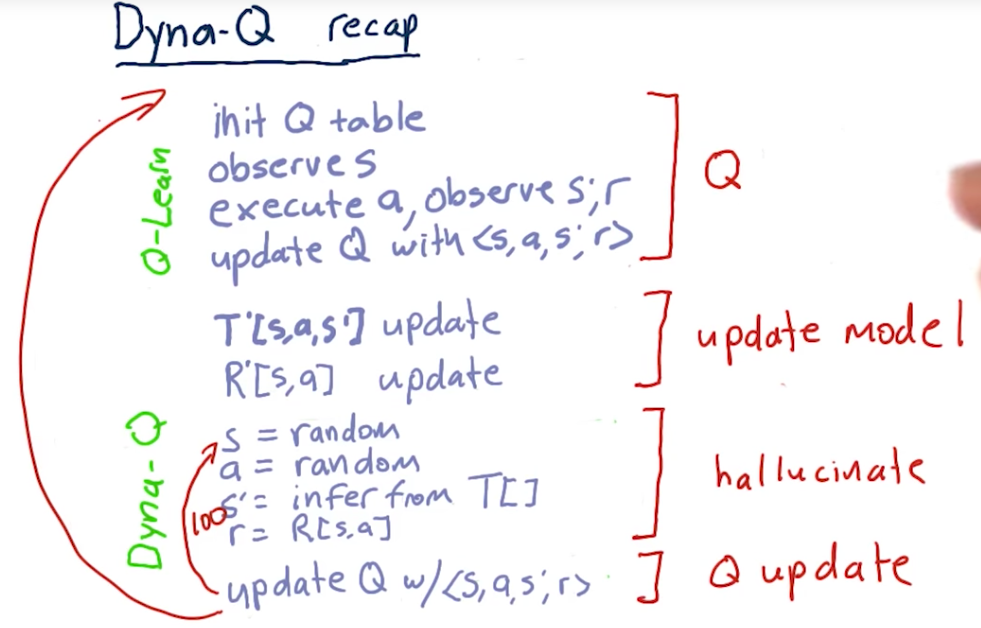 Dyna-Q recap
init Q table
observe s
execute a, observe s', r
update Q with <s, a, s', r>
Q-Learn
Q
T'[s,a,s'] update
R'[s,a] update
update model
Dyna-Q
s = random
a = random
s' = infer from T[]
r = R[s,a]
100
hallucinate
update Q w/ <s, a, s', r>
Q update